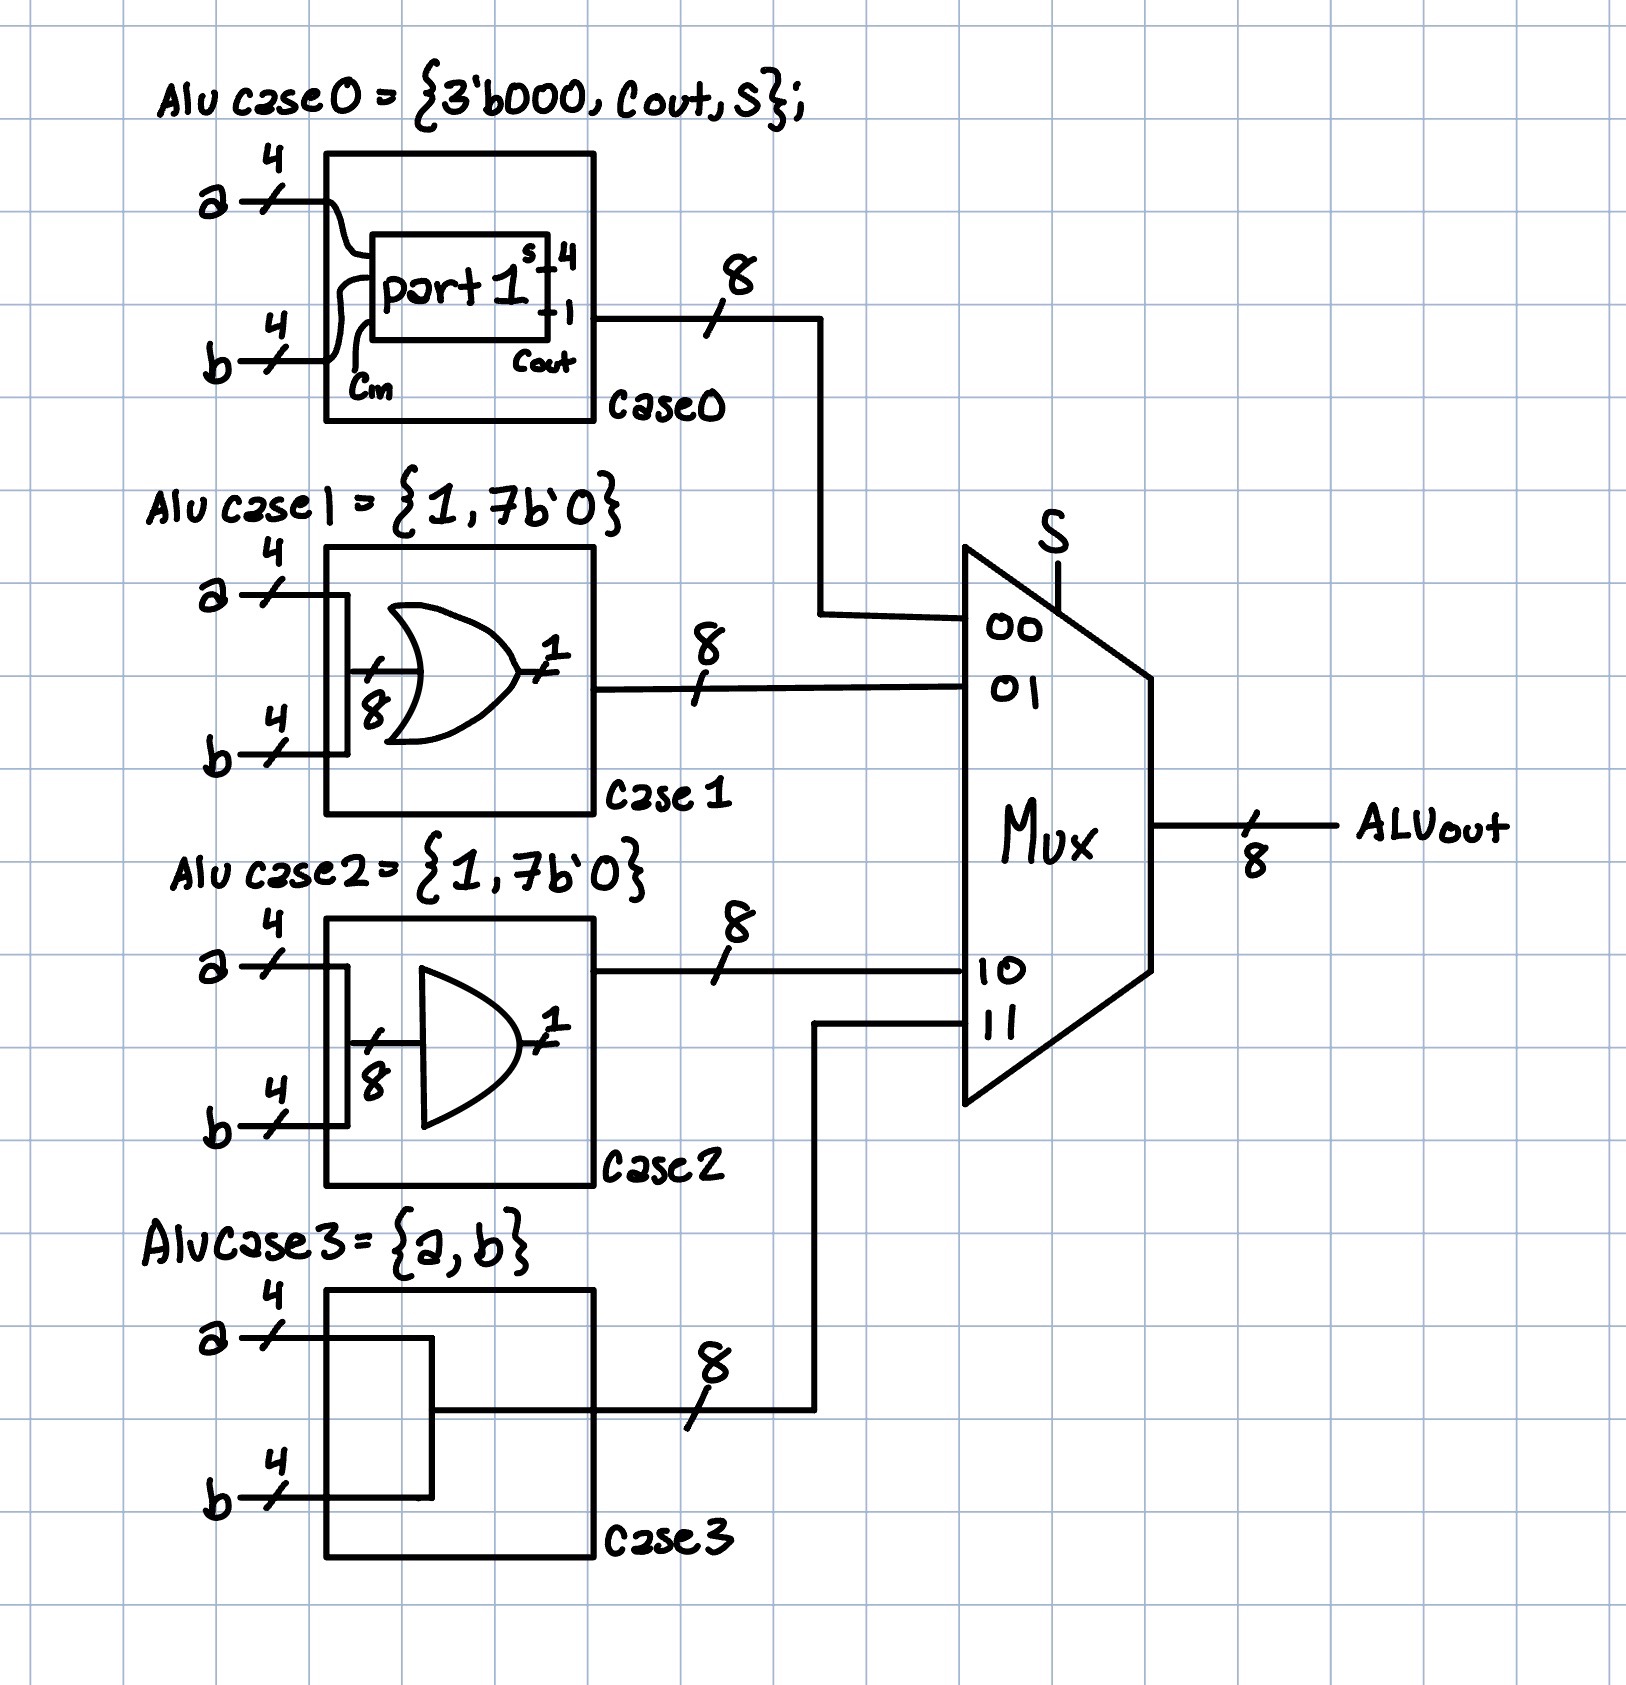 Alu case0 = {3'b000, Cout, S};
4
a
s 4
part 1
1
4
b
Cin
Cout
8
case0
Alu case1 = {1, 7b'0}
4
a
1
8
4
b
8
case1
Alu case2 = {1, 7b'0}
4
a
1
8
4
b
8
case2
AluCase3 = {a, b}
4
a
4
b
8
case3
S
00
01
Mux
10
11
8
ALUout